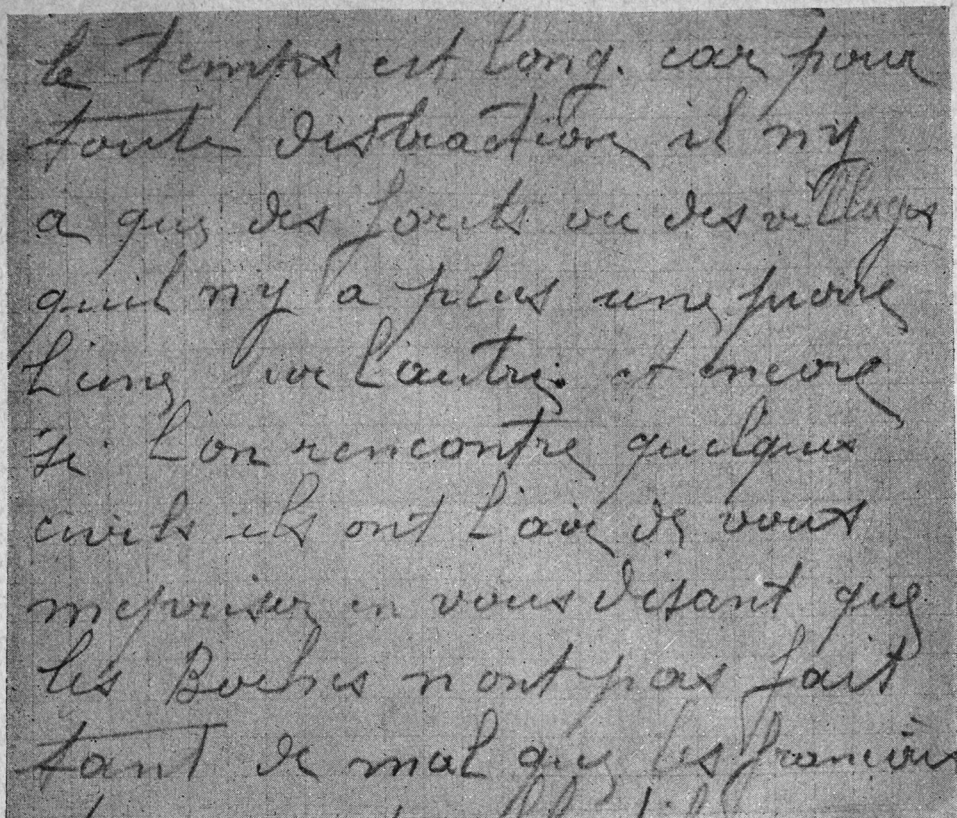 le temps est long. car pour
toute distraction il ny
a que des forets ou des villages
quil ny a plus une piere
L'une sur L'autre. et encore
si L'on rencontre quelques
civils ils ont L'air de vous
mepriser en vous disant que
les Boches nont pas fait
tant de mal que les francais